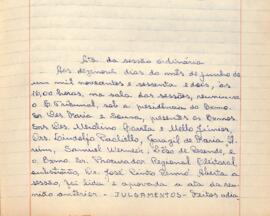 Ata da sessão ordinária
Aos dezenove dias do mês de junho de
um mil novecentos e sessenta e dois, às
16,00 horas, na sala das sessões, reuniu-se
o E. Tribunal, sob a presidência do Exmo.
Sr. Des. Faria e Sousa, presentes os Exmos.
Srs. Des. Merolino Corrêa e Mello Júnior,
Drs. Lindolfo Paoliello, Gouzil de Faria
Samuel Werneck, Leão de Resende, e
o Exmo. Sr. Procurador Regional Eleitoral
substituto, Dr. José Pinto Renó. Aberta a
sessão, foi lida e aprovada a ata da reu-
nião anterior. - JULGAMENTOS - Feitos adia-